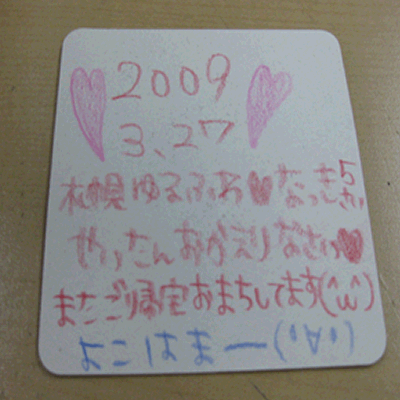 2009
3.27
札幌ゆるふわ♥なっき5さい
やいたんおかえりなさい♥
またご帰宅おまちしてます(^ω^)
よこはまー(・∀・)